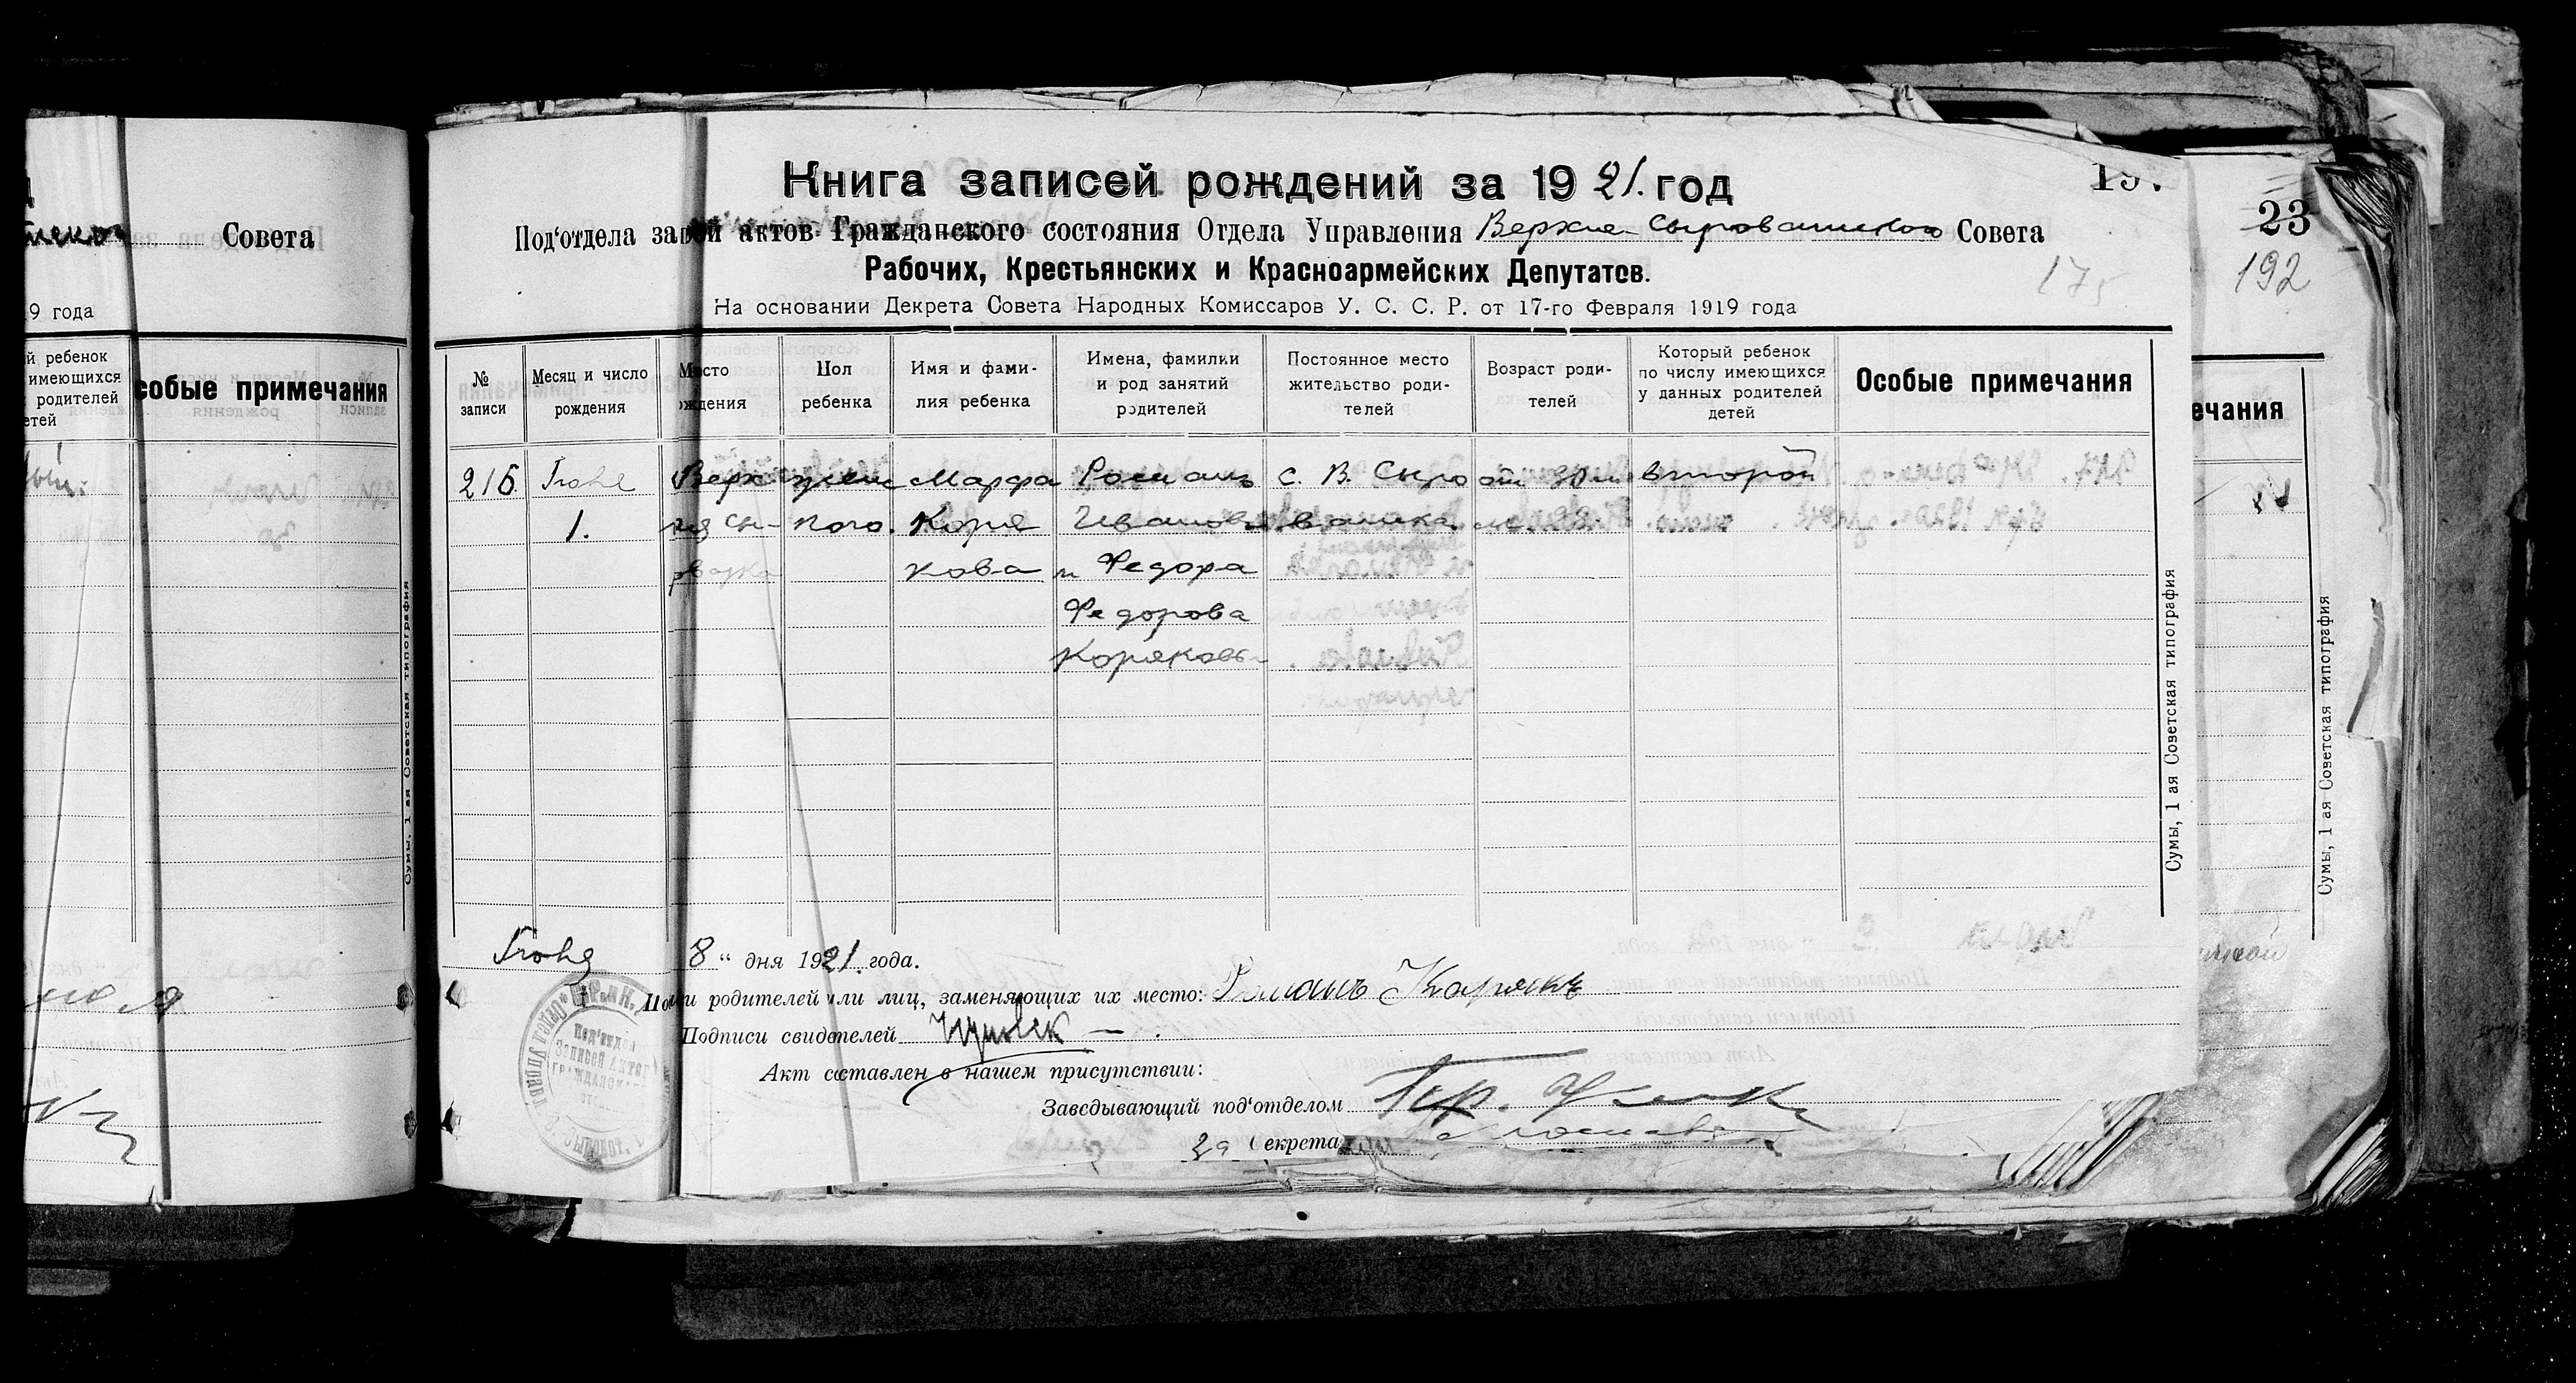 Совета
9 года
й ребенок
имеющихся
родителей
етей
собые примечания
Сумы, 1 ая Советская типография
Книга записей рождений за 19 21. год
Под‘отдела записей актов Гражданского состояния Отдела Управления Верхне-Сыроватского Совета
Рабочих, Крестьянских и Красноармейских Депутатов.
На основании Декрета Совета Народных Комиссаров У. С. С. Р. от 17-го Февраля 1919 года
175
23
192
№
записи
Месяц и число
рождения
Место
рождения
Пол
ребенка
Имя и фами-
лия ребенка
Имена, фамилии
и род занятий
родителей
Постоянное место
жительство роди-
телей
Возраст роди-
телей
Который ребенок
по числу имеющихся
у данных родителей
детей
Особые примечания
ечания
216.
1.
Верх
ня Сы-
роватка
женс
кого.
Марфа
Коря
кова
Роман
Иванов
и Федора
Федорова
Коряковы
с. В. Сыро
ватка
второй
Сумы, 1 ая Советская типография
Сумы, 1 ая Советская типография
8 “ дня 1921. года.
родителей или лиц, заменяющих их место: Романъ
Подписи свидетелей
Акт составлен в нашем присутствии:
Заведывающий под‘отделом
За Секрета